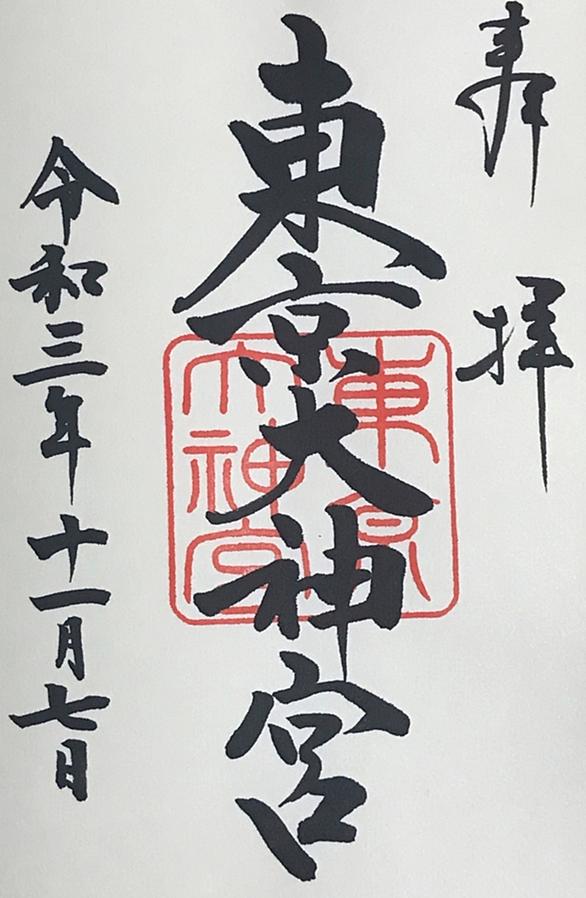 奉拝
東京大神宮
東京
大神宮
令和三年十一月七日